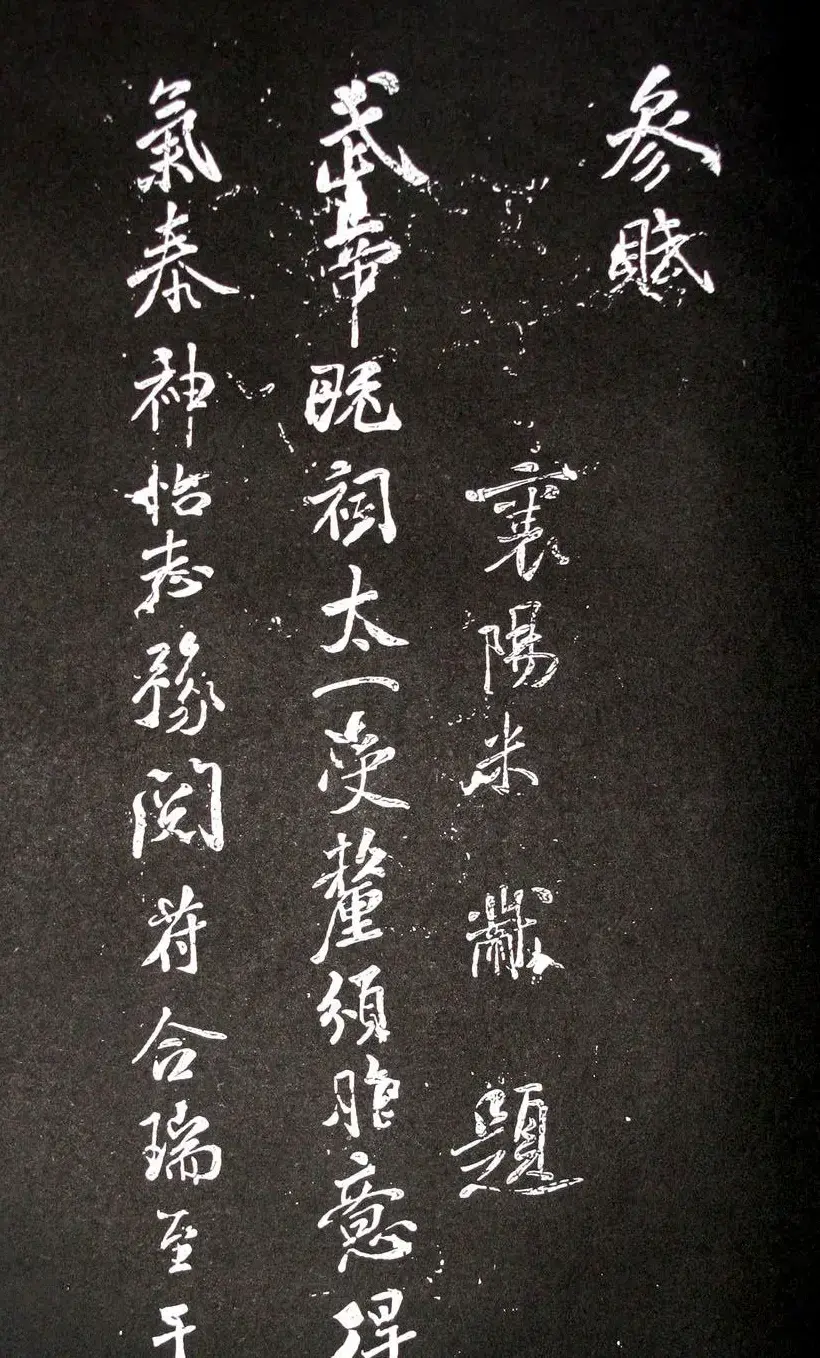 參賦
襄陽米黻題
武帝既祠太一受釐頒胙意得
氣泰神怡志豫閱符合瑞至于